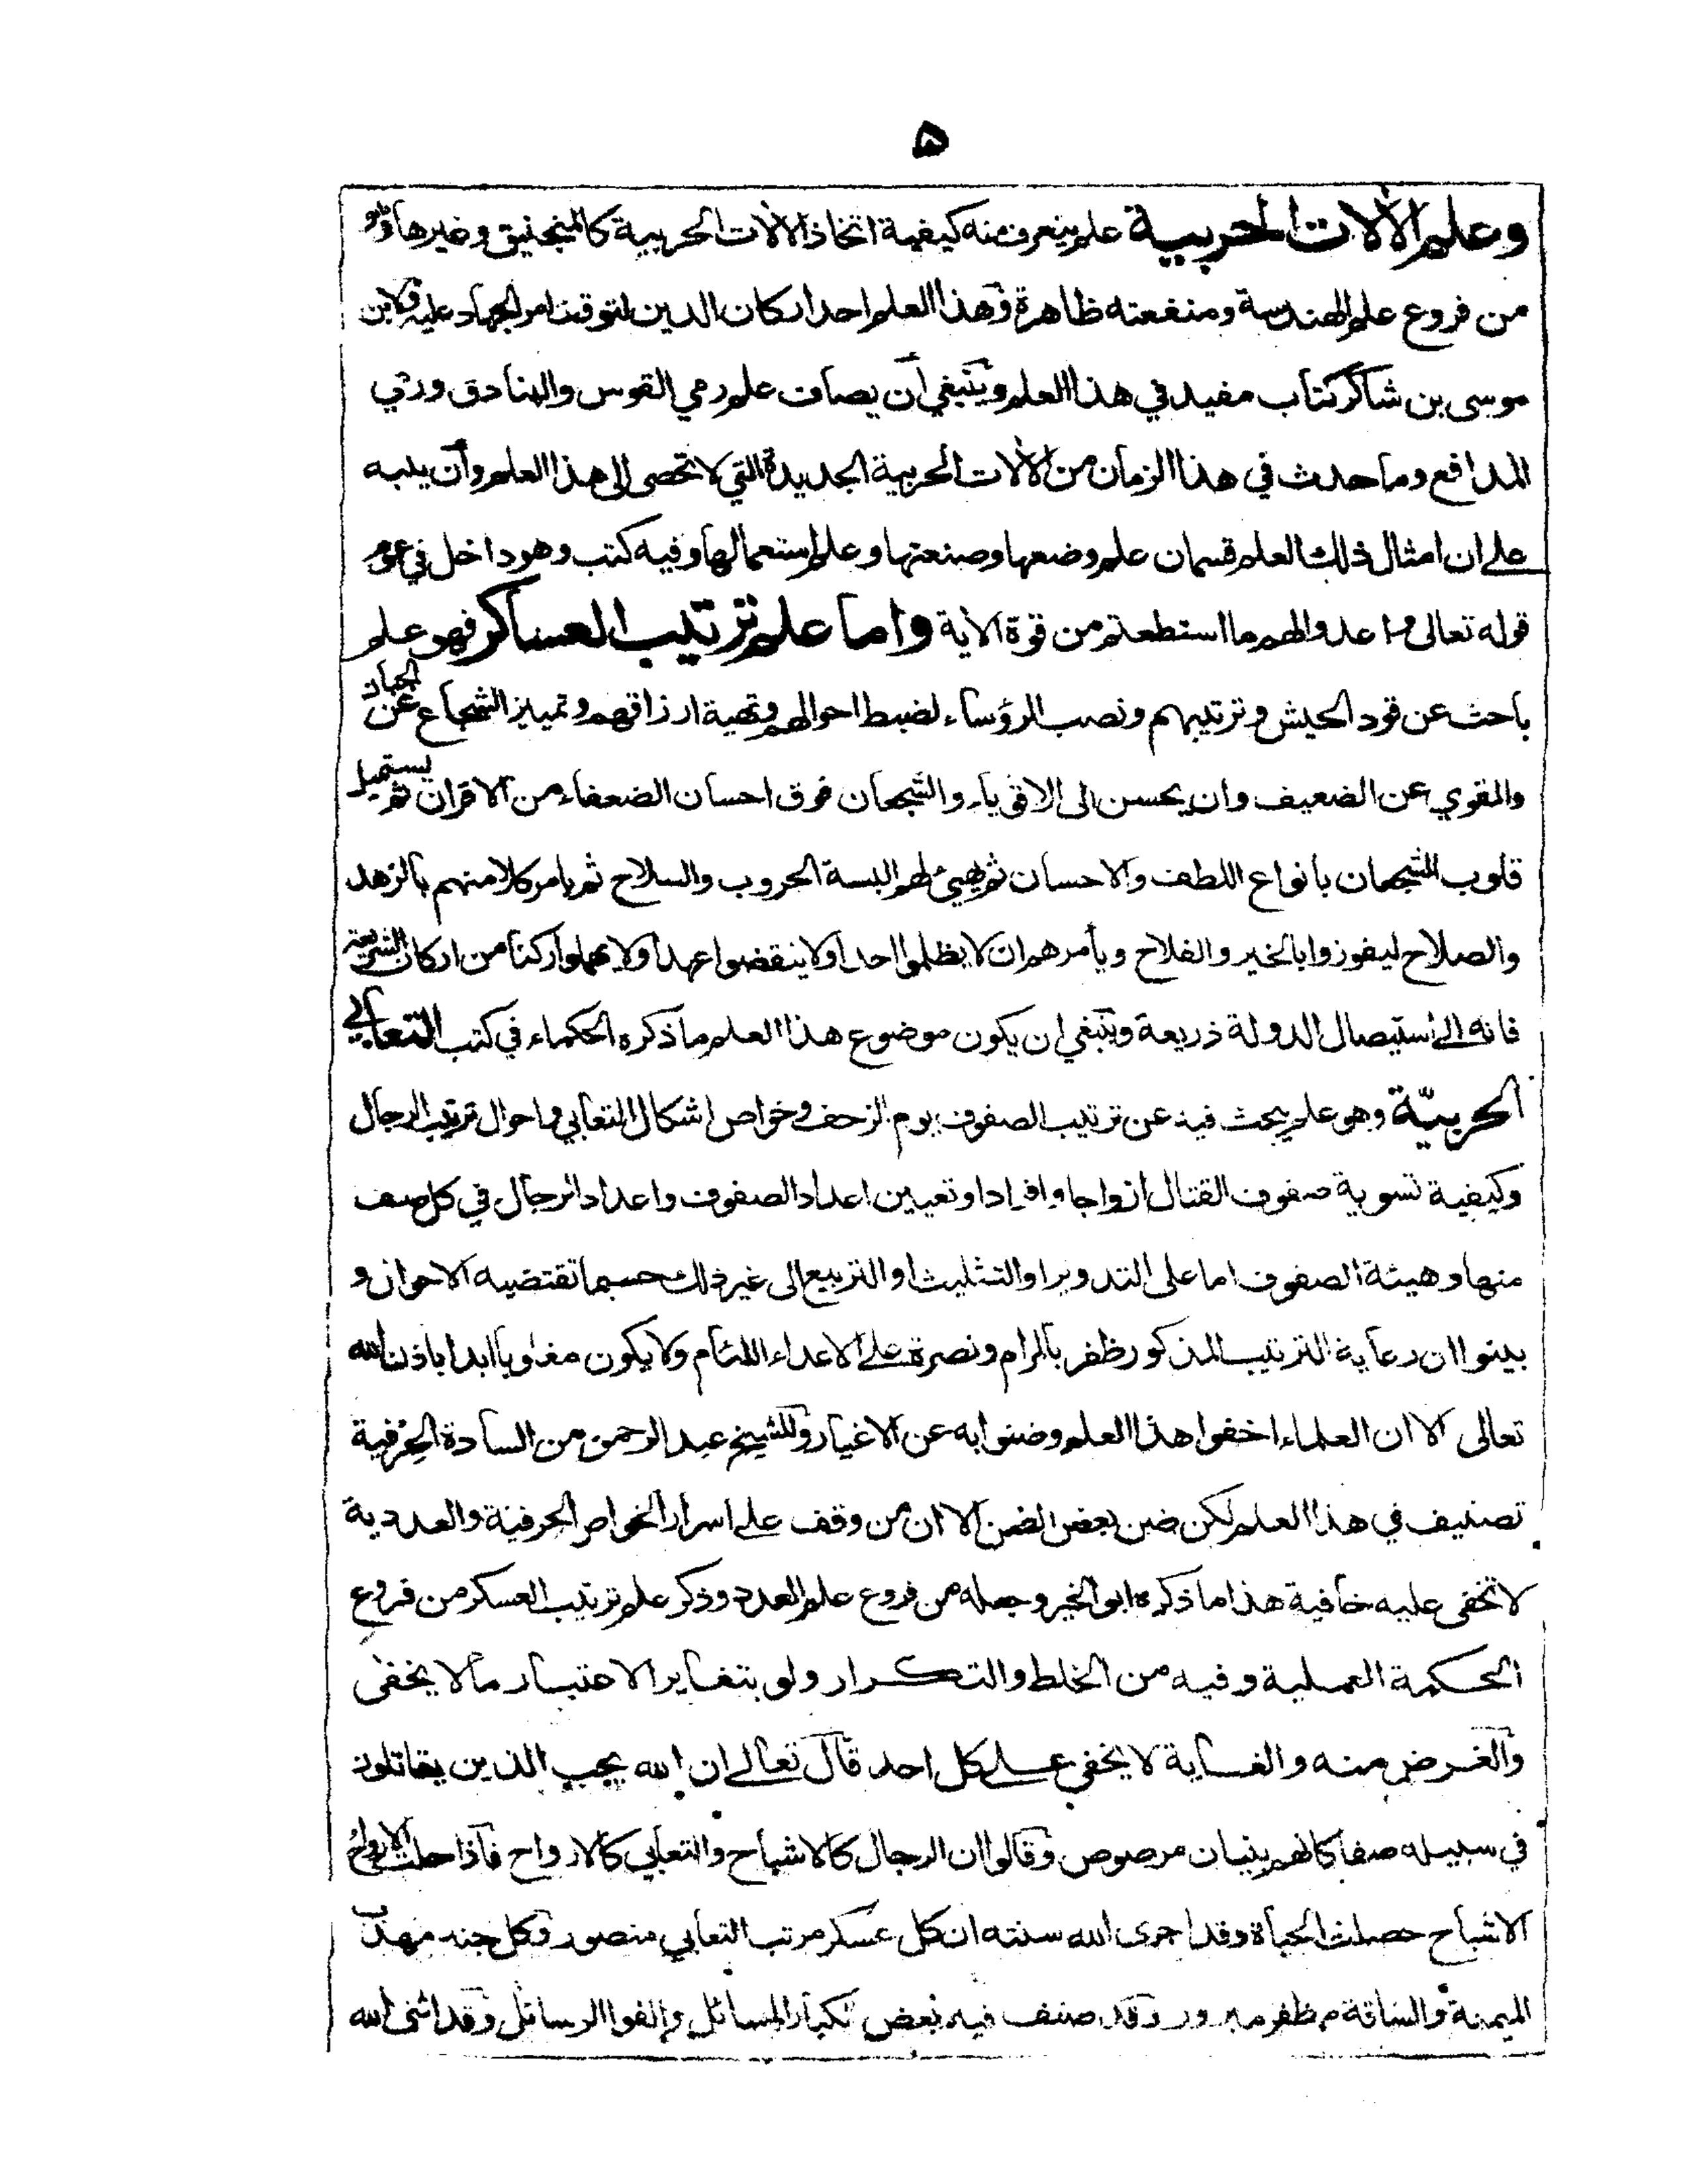 ۵
وعلم الآلات الحربية علم يتعرف منه كيفية اتخاذ الآلات الحربية كالمنجنيق وغيرها وهو
من فروع علم الهندسة ومنفعته ظاهرة وهذا العلم احد اركان الدين لتوقف امر الجهاد عليه ولابن
موسى بن شاكر كتاب مفيد في هذا العلم وينبغي أن يضاف علم رمي القوس والبنادق ورمي
المدافع وما حدث في هذا الزمان من الآلات الحربية الجديدة التي لا تحصى الى هذا العلم وأن ينبه
على ان امثال ذلك العلم قسمان علم وضعها وصنعتها وعلم استعمالها وفيه كتب وهو داخل في عموم
قوله تعالى واعدوا لهم ما استطعتم من قوة الآية واما علم ترتيب العساكر فهو علم
باحث عن قود الجيش وترتيبهم ونصب الرؤساء لضبط احوالهم وتهية ارزاقهم وتمييز الشجاع عن الجبان
والقوي عن الضعيف وان يحسن الى الاقوياء والشجعان فوق احسان الضعفاء من الاقران ثم يستميل
قلوب الشجعان بانواع اللطف والاحسان ثم يهيئ لهم البسة الحروب والسلاح ثم يامر كلا منهم بالزهد
والصلاح ليفوزوا بالخير والفلاح ويأمرهم ان لا يظلموا احدا ولا ينقضوا عهدا ولا يهملوا ركنا من اركان الشريعة
فانه الى استيصال الدولة ذريعة وينبغي ان يكون موضوع هذا العلم ما ذكره الحكماء في كتب التعابي
الحربيّة وهو علم يبحث فيه عن ترتيب الصفوف يوم الزحف وخواص اشكال التعابي واحوال ترتيب الرجال
وكيفية تسوية صفوف القتال ازواجا وافرادا وتعيين اعداد الصفوف واعداد الرجال في كل صف
منها وهيئة الصفوف اما على التدوير او التثليث او التربيع الى غير ذلك حسبما تقتضيه الاحوال و
بينوا ان رعاية الترتيب المذكور ظفر بالمرام ونصرة على الاعداء اللئام ولا يكون مغلوبا ابدا باذن الله
تعالى الا ان العلماء اخفوا هذا العلم وضنوا به عن الاغيار وللشيخ عبد الرحمن من السادة الحرفية
تصنيف في هذا العلم لكن ضن بعض الضن الا ان من وقف على اسرار الخواص الحرفية والعددية
لا تخفى عليه خافية هذا ما ذكره ابو الخير وجعله من فروع علم العدد وذكر علم ترتيب العسكر من فروع
الحكمة العملية وفيه من الخلط والتكرار ولو بتغاير الاعتبار ما لا يخفى
والغرض منه والغاية لا يخفى على كل احد قال تعالى ان الله يحب الذين يقاتلون
في سبيله صفا كانهم بنيان مرصوص وقالوا ان الرجال كالاشباح والتعابي كالارواح فاذا حلت الارواح
الاشباح حصلت الحياة وقد اجرى الله سنته ان كل عسكر مرتب التعابي منصور وكل جند مهذب
الميمنة والساقة مظفر مبرور وقد صنف فيه بعض الكبار المسائل والفوا الرسائل وقد اثنى الله